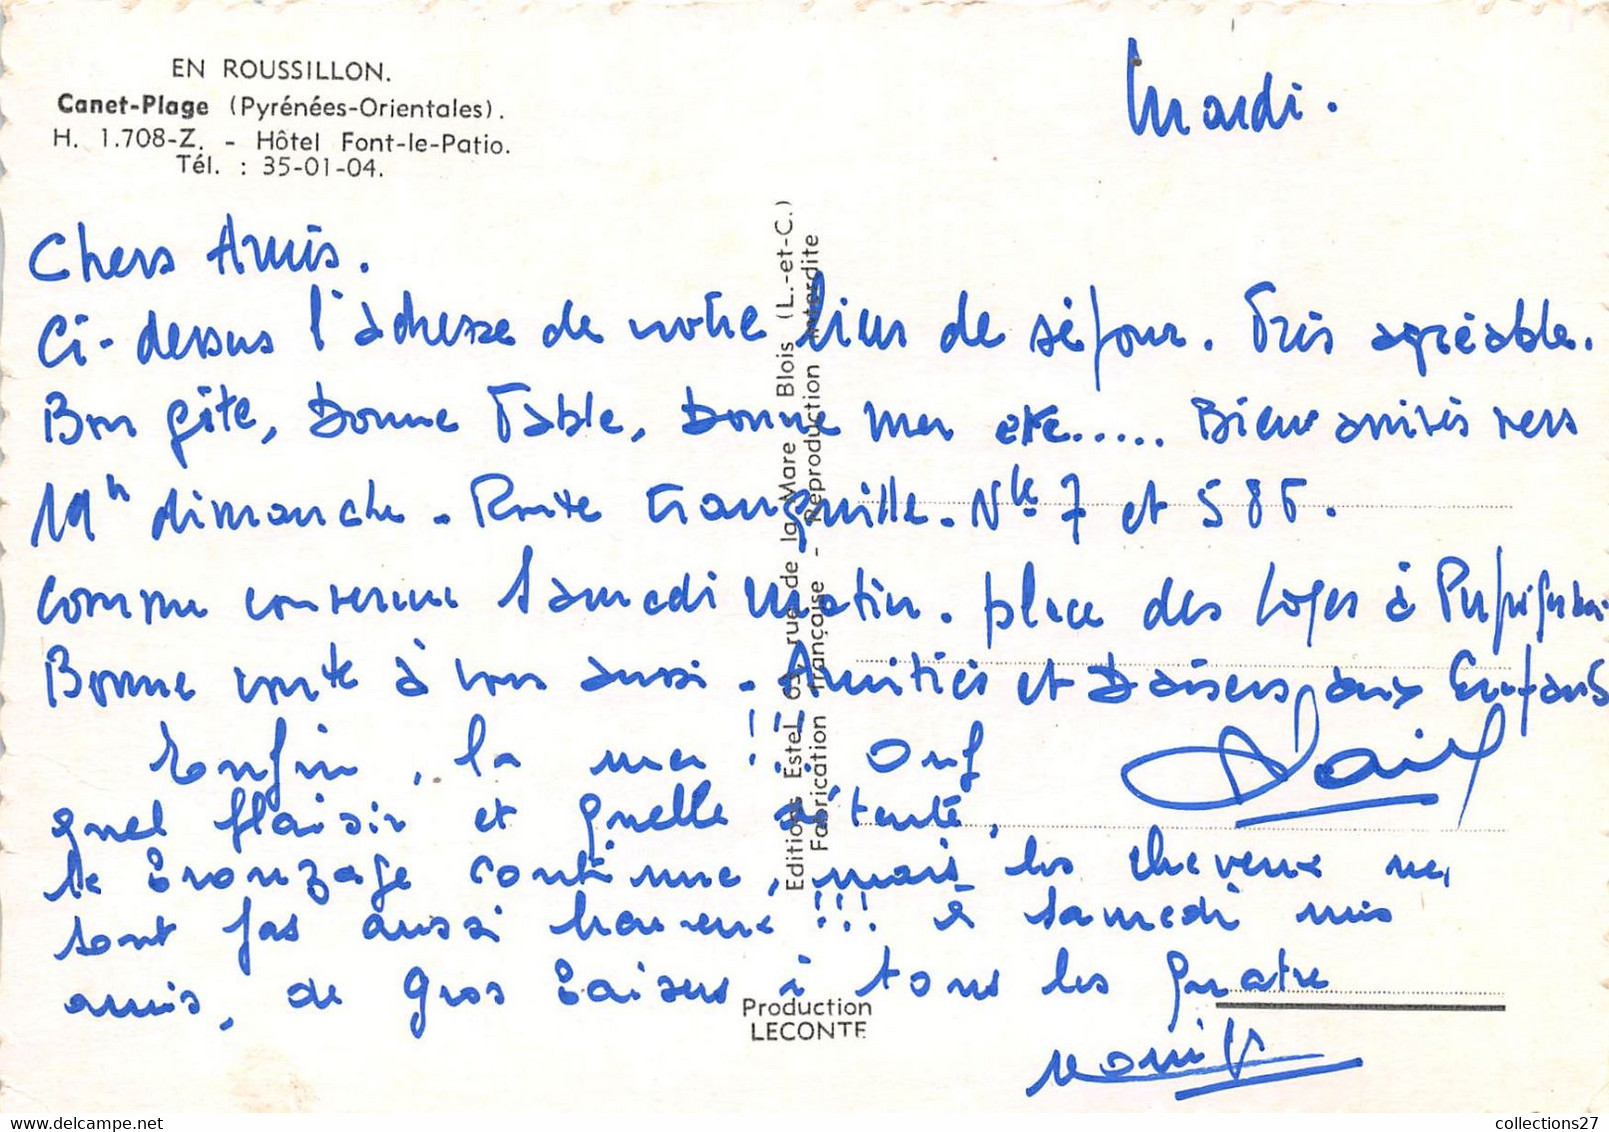 EN ROUSSILLON.
Canet-Plage (Pyrénées-Orientales).
H. 1.708-Z. - Hôtel Font-le-Patio.
Tél. : 35-01-04.
Mardi.
Chers Amis.
Ci-dessus l'adresse de notre lieu de séjour. Très agréable.
Bon gîte, Bonne Table, Bonne mer etc..... Bien arrivés vers
19h dimanche. Route tranquille. Nle 7 et 586.
Comme convenu Samedi Matin. place des Loges à
Bonne route à vous aussi. Amitiés et Baisers aux Enfants
Alain
Enfin, la mer !!! Ouf
quel plaisir et quelle détente,
le bronzage continue, mais les cheveux ne
sont pas aussi heureux !!! à samedi mes
amis, de gros baisers à tous les quatre
Editions Estel 63, rue de la Mare Blois (L.-et-C.)
Fabrication française - Reproduction interdite
Production
LECONTE
collections27